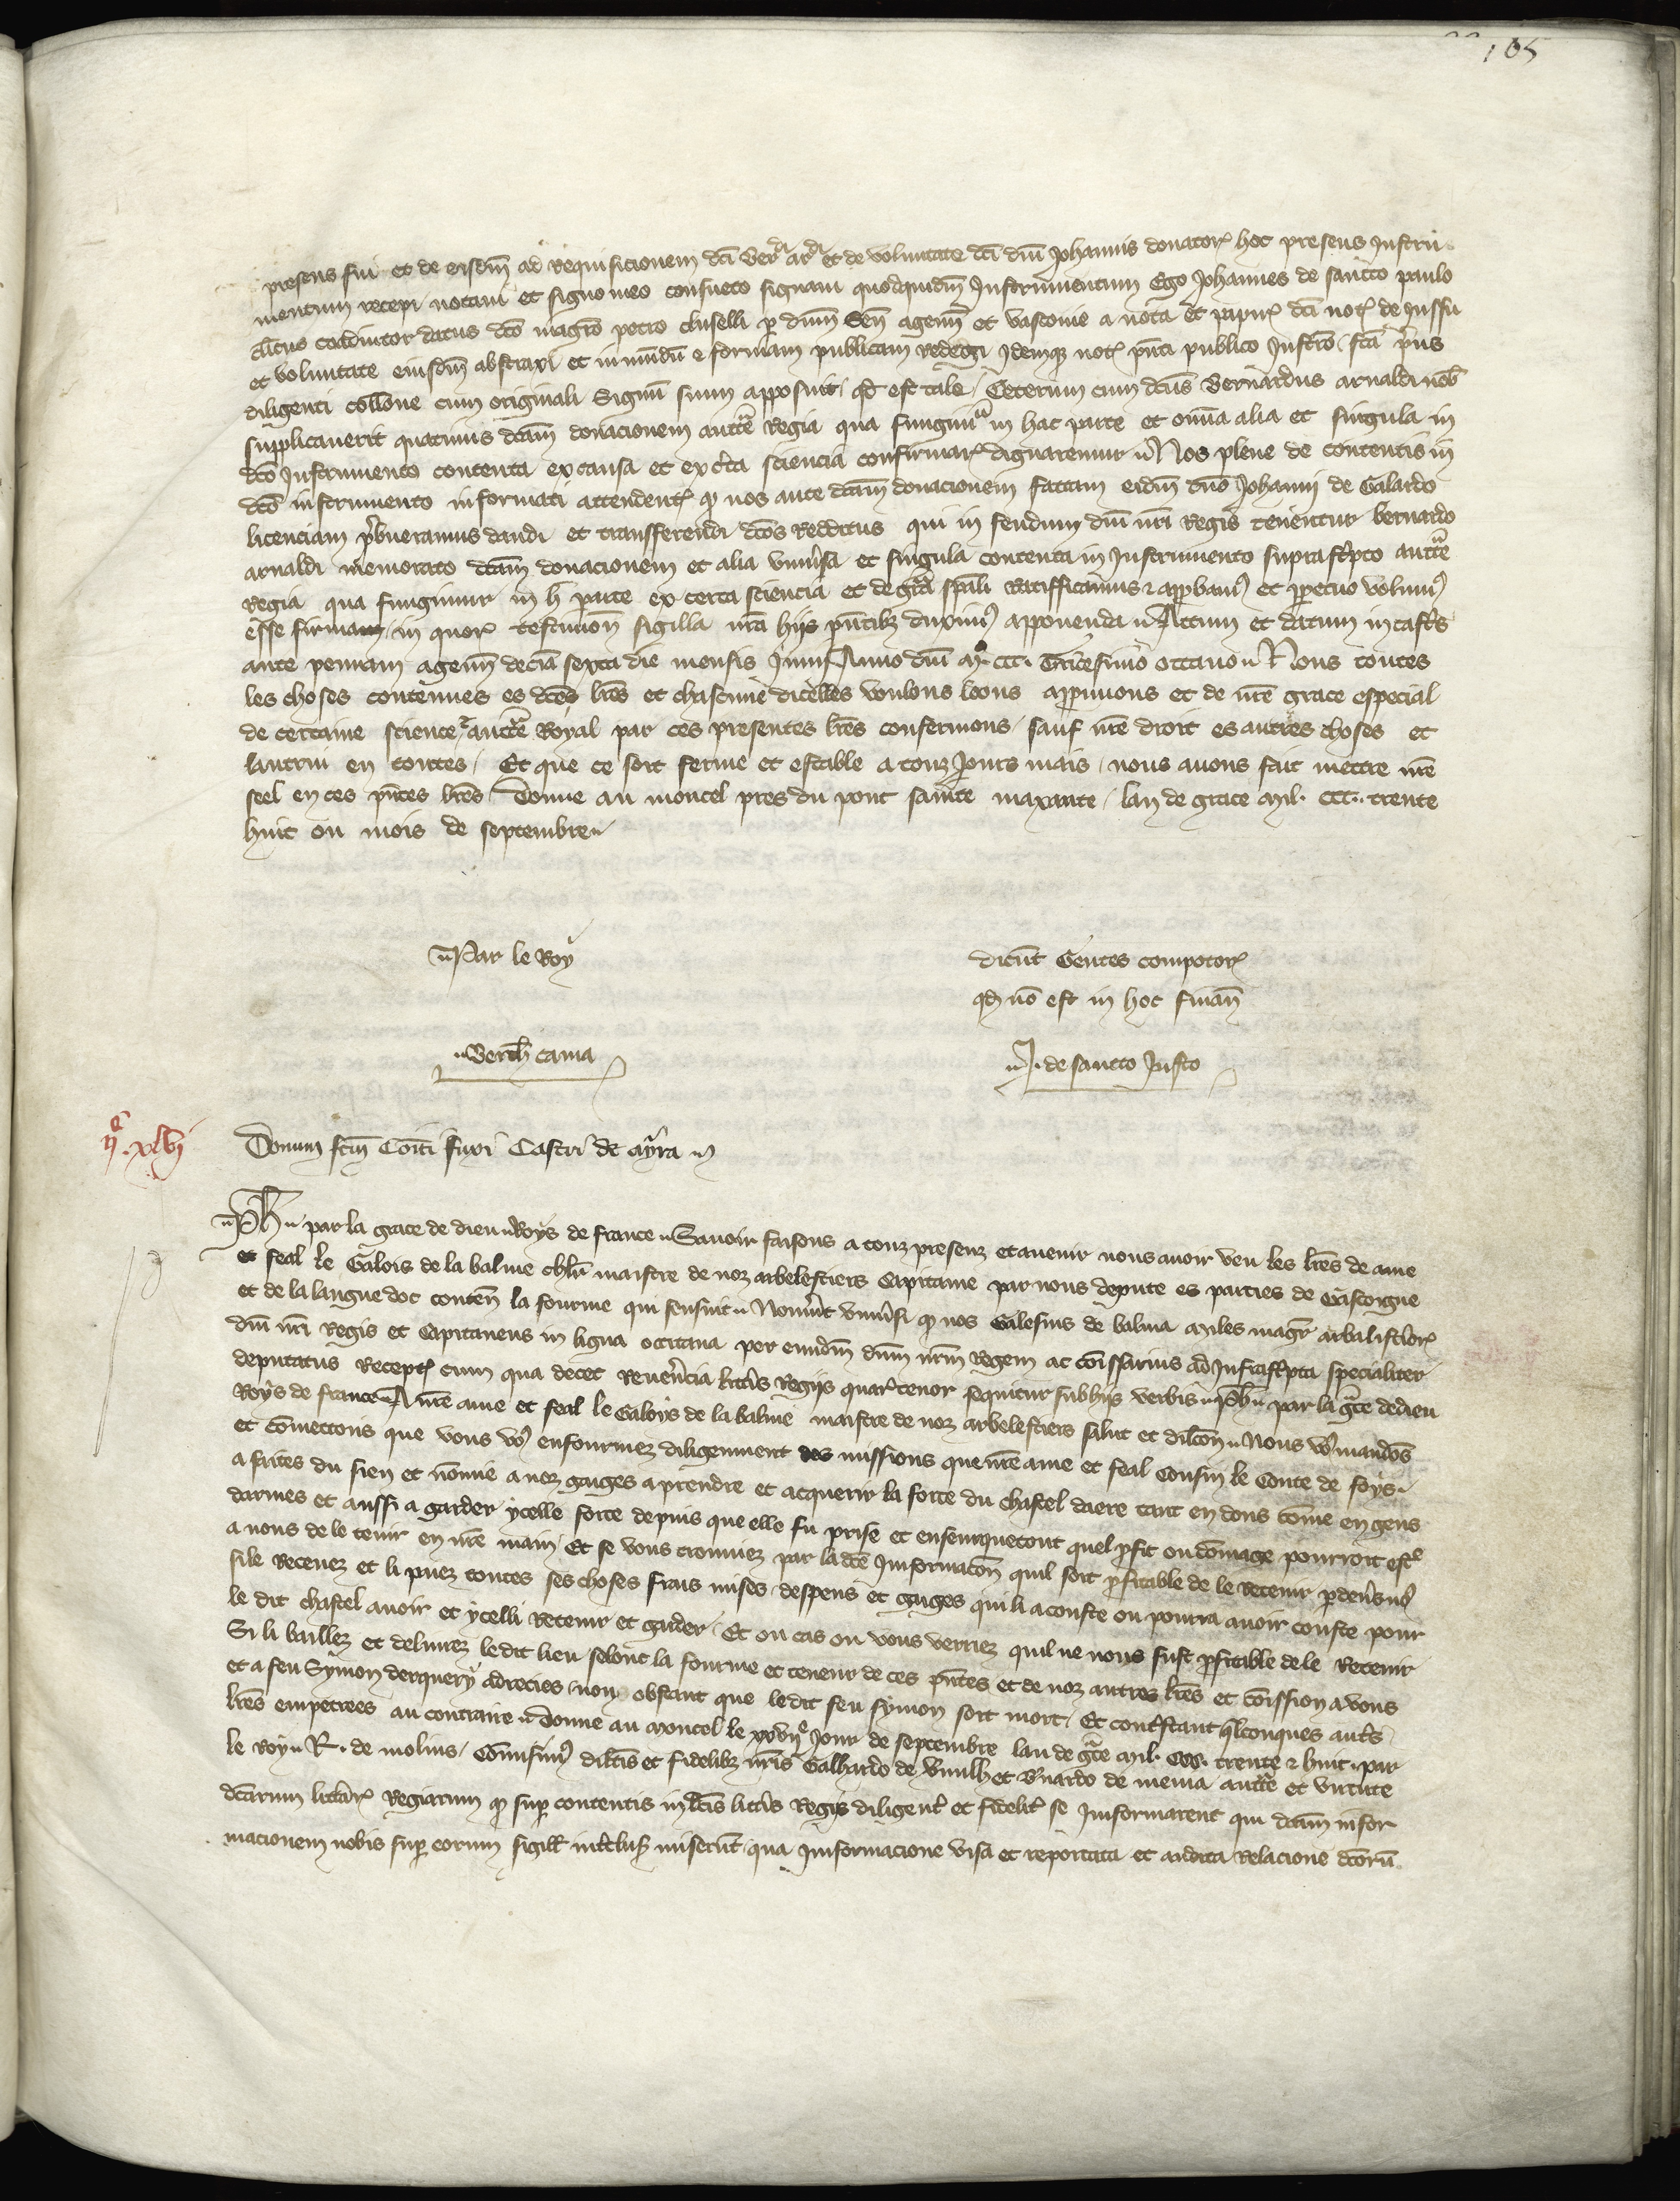 105
presens fui et de eisdm̄ ad requisicionem dc̄i Ber̄di ar̄di et de voluntate dc̄i dn̄i Johannis donatorꝭ hoc presens Instru
mentum recepi notaui et signo meo consueto signaui quodquidm̄ Instrumentum Ego Johannes de sancto paulo
cl̄icus coadiutor datus dc̄o magr̄o petro cluselli p̱ dn̄um Sen̄ agenn̄ et vasconie a nota et papirꝭ dc̄i notꝭ de jussu
et voluntate eiusdm̄ abstraxi et in mundū & formam publicam redegi Idemqꝫ notꝭ pn̄ti publico Instrō fc̄a pͥus
diligenti coll̄one cum originali Signū suum apposuit qd̄ est tale. Ceterum cum dc̄us Bernardus arnaldi nob̄
supplicauerit quatinus dc̄am donacionem auctt̄e Regia qua fungimur in hac parte et om̄ia alia et singula in
dc̄o Instrumento contenta ex causa et ex cͤta sciencia confirmarꝭ dignaremur Nos plene de contentis in
dc̄o instrumento informati attendentꝭ qꝫ nos ante dc̄am donacionem factam eidm̄ dn̄o Johanni de Galardo
licenciam pͤbueramus dandi et transferendi dc̄os redditus qui in feudum dn̄i nr̄i Regis tenentur bernardo
arnaldi memorato dc̄am donacionem et alia vniūsa et singula contenta in Instrumento suprascͥpto auctt̄e
Regia qua fungimur in h̄ parte ex certa sciencia et de gr̄a spāli ratifficamus & app̱bamꝰ et p̱petuo volumꝰ
esse firmam in quorꝭ testimon̄ sigilla nr̄a hijs pn̄tibꝫ duximꝰ apponenda Actum et datum in castͥs
ante pennam agenn̄ decīa sexta die mensis Junij Anno dn̄i mͦ. ccc. Tricesimo octauo Nous toutes
les choses contenues es dc̄es lr̄es et chascune dicelles voulons loons app̱uuons et de nr̄e grace especial
de certaine science & auctt̄e Royal par ces presentes lr̄es confermons sauf nr̄e droit es autres choses et
lautrui en toutes. Et que ce soit ferme et estable a touz jours mais nous auons fait mettre nr̄e
seel en ces pn̄tes lr̄es Donne au moncel pres du pont sainte maxante lan de grace mil. ccc. trente
huit ou mois de septembre
Par le Roy
dicūt Gentes compotorꝭ
qd̄ nō est in hoc finan̄
Berth̄ cama
J. de sancto Justo
ijͤ. xlvj
Donum fcm̄ Cōiti fuxi Castri de ayra
Ph̄ par la grace de dieu Roys de france Sauoir faisons a touz presenz et auenir nous auoir veu les lr̄es de ame
et feal le Galois de la balme chlr̄ maistre de noz arbelestiers Capitaine par nous depute es parties de Gascoigne
et de la langue doc conten̄ la fourme qui sensuit Nouūit vniūsi qꝫ nos Galesius de balma miles magr̄ arbalistͤorꝭ
dn̄i nr̄i Regis et Capitaneus in ligua occitana per eundm̄ dn̄m nr̄m Regem ac cōissarius ad Infrascͥpta specialiter
deputatus Receptꝭ cum qua decet reuēn̄cia littͥis Regijs quarꝭ tenor sequitur sub hijs verbis Ph̄ par la gr̄ce de dieu
Roys de france A nr̄e ame et feal le Galoys de la balme maistre de noz arbelestiers salut et dilc̄on Nous vo⁹ mandōs
et cōmettons que vous vo⁹ enfourmez diligemment des missions que nr̄e ame et feal Cousin le Conte de foys
a faites du sien et nōmie a noz gaiges a prendre et acquerir la force du chastel daere tant en dons cōme en gens
darmes et aussi a garder ycelle force depuis que elle fu prise et ensemquetout quel p̱fit ou dōmage pourroit estͤ
a nous de le tenir en nr̄e main Et se vous trouuiez par la dc̄e Informac̄on quil soit p̱fitable de le retenir p̱ deūs nꝰ
si le Receuez et li paiez toutes ses choses frais mises despens et gaiges qui li a couste ou pourra auoir couste pour
le dit chastel auoir et ycelli retenir et garder. Et ou cas ou vous verriez quil ne nous fust p̱fitable de le Retenir
Si li baillez et deliurez ledit lieu selont la fourme et teneur de ces pn̄tes et de noz autres lr̄es et cōission a vous
et a feu Symon derquery adrecies non obstant que ledit feu symon soit mort Et contͤstant qͥlconques autͤs
lr̄es empetrees au contraire Donne au moncel le xxvijͤ Jour de septembre lan de gr̄ce mil. ccc. trente & huit. par
le Roy R. de molins. Cōmisimꝰ dilc̄is et fidelibꝫ nr̄is Galhardo de et Bͤnardo de mena auctt̄e et virtute
dc̄arum littͤarꝭ Regiarum qꝫ sup̱ contentis in dc̄is littͤis Regijs diligentͤ et fidelitͤ se Informarent qui dc̄am infor
macionem nobis sup̱ eorum sigill̄ intͤclusꝭ miserūt qua Informacione visa et reportata et audita relacione dc̄orū